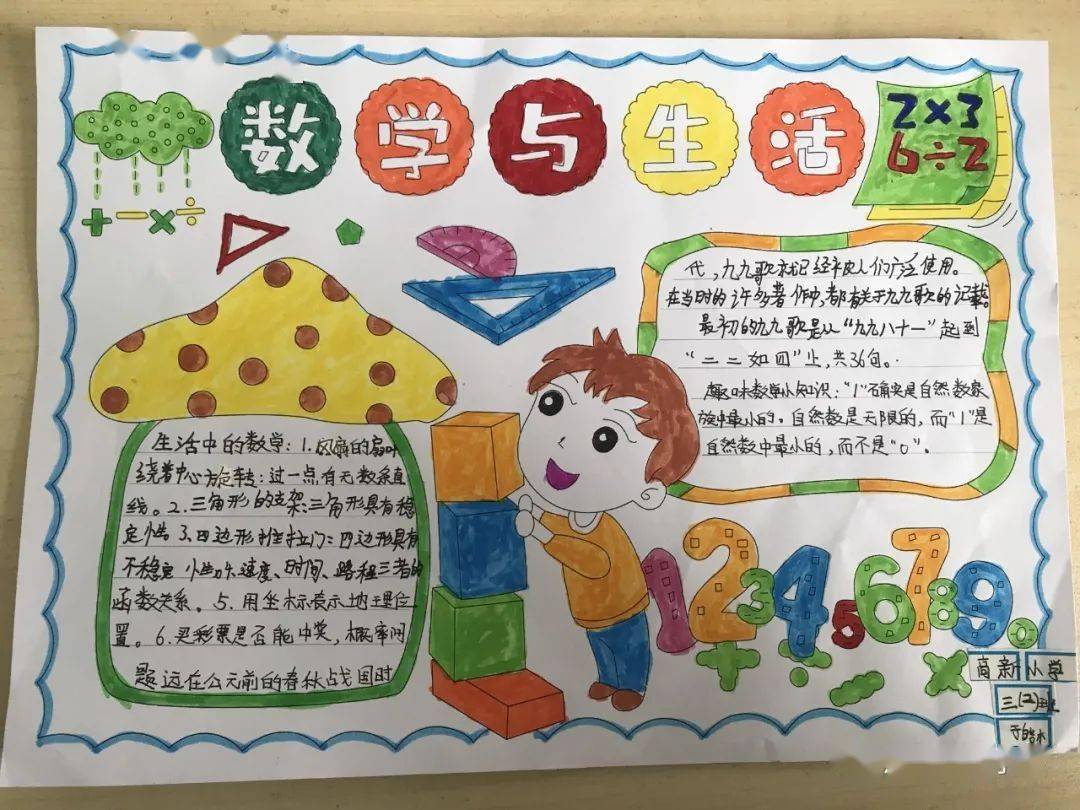 数学与生活
2×3
6÷2
+-×÷
生活中的数学:1.风扇的扇叶
绕着中心旋转:过一点,有无数条直
线。2.三角形的支架:三角形具有稳
定性。3.四边形推拉门:四边形具有
不稳定性。4.速度、时间、路程三者的
函数关系。5.用坐标表示地理位
置。6.买彩票是否能中奖,概率问
题远在公元前的春秋战国时
代,九九歌就已经被人们广泛使用。
在当时的许多著作中,都有关于九九歌的记载。
最初的九九歌是从“九九八十一”起到
“二二如四”止,共36句。
趣味数学小知识:“1”确实是自然数家
族中最小的。自然数是无限的,而“1”是
自然数中最小的,而不是“0”。
1234567890
+÷-×
高新小学
三(2)班
于皓